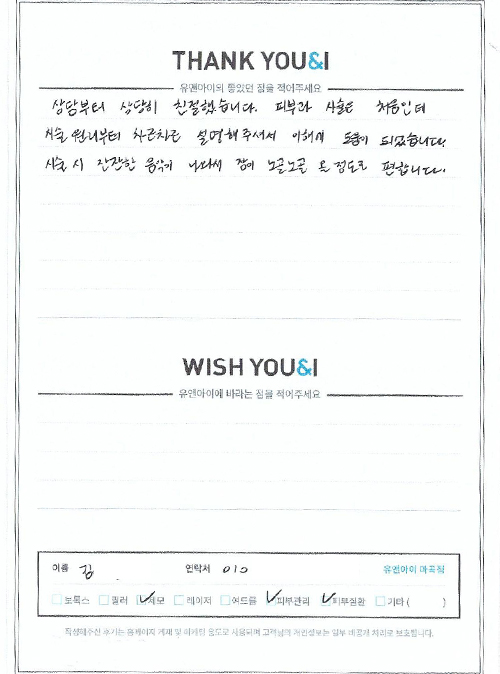 THANK YOU&I
유앤아이의 좋았던 점을 적어주세요
상담부터 상당히 친절했습니다. 피부과 시술은 처음인데
시술 원리부터 차근차근 설명해주셔서 이해에 도움이 되었습니다.
시술 시 잔잔한 음악이 나와서 잠이 노골노골 온 정도로 편합니다.
WISH YOU&I
유앤아이에 바라는 점을 적어주세요
이름 김 연락처 010 유앤아이 마곡점
보톡스 필러 제모 레이저 여드름 피부관리 피부질환 기타 ( )
작성해주신 후기는 홈페이지 게재 및 마케팅 용도로 사용되며 고객님의 개인정보는 일부 비공개 처리로 보호됩니다.